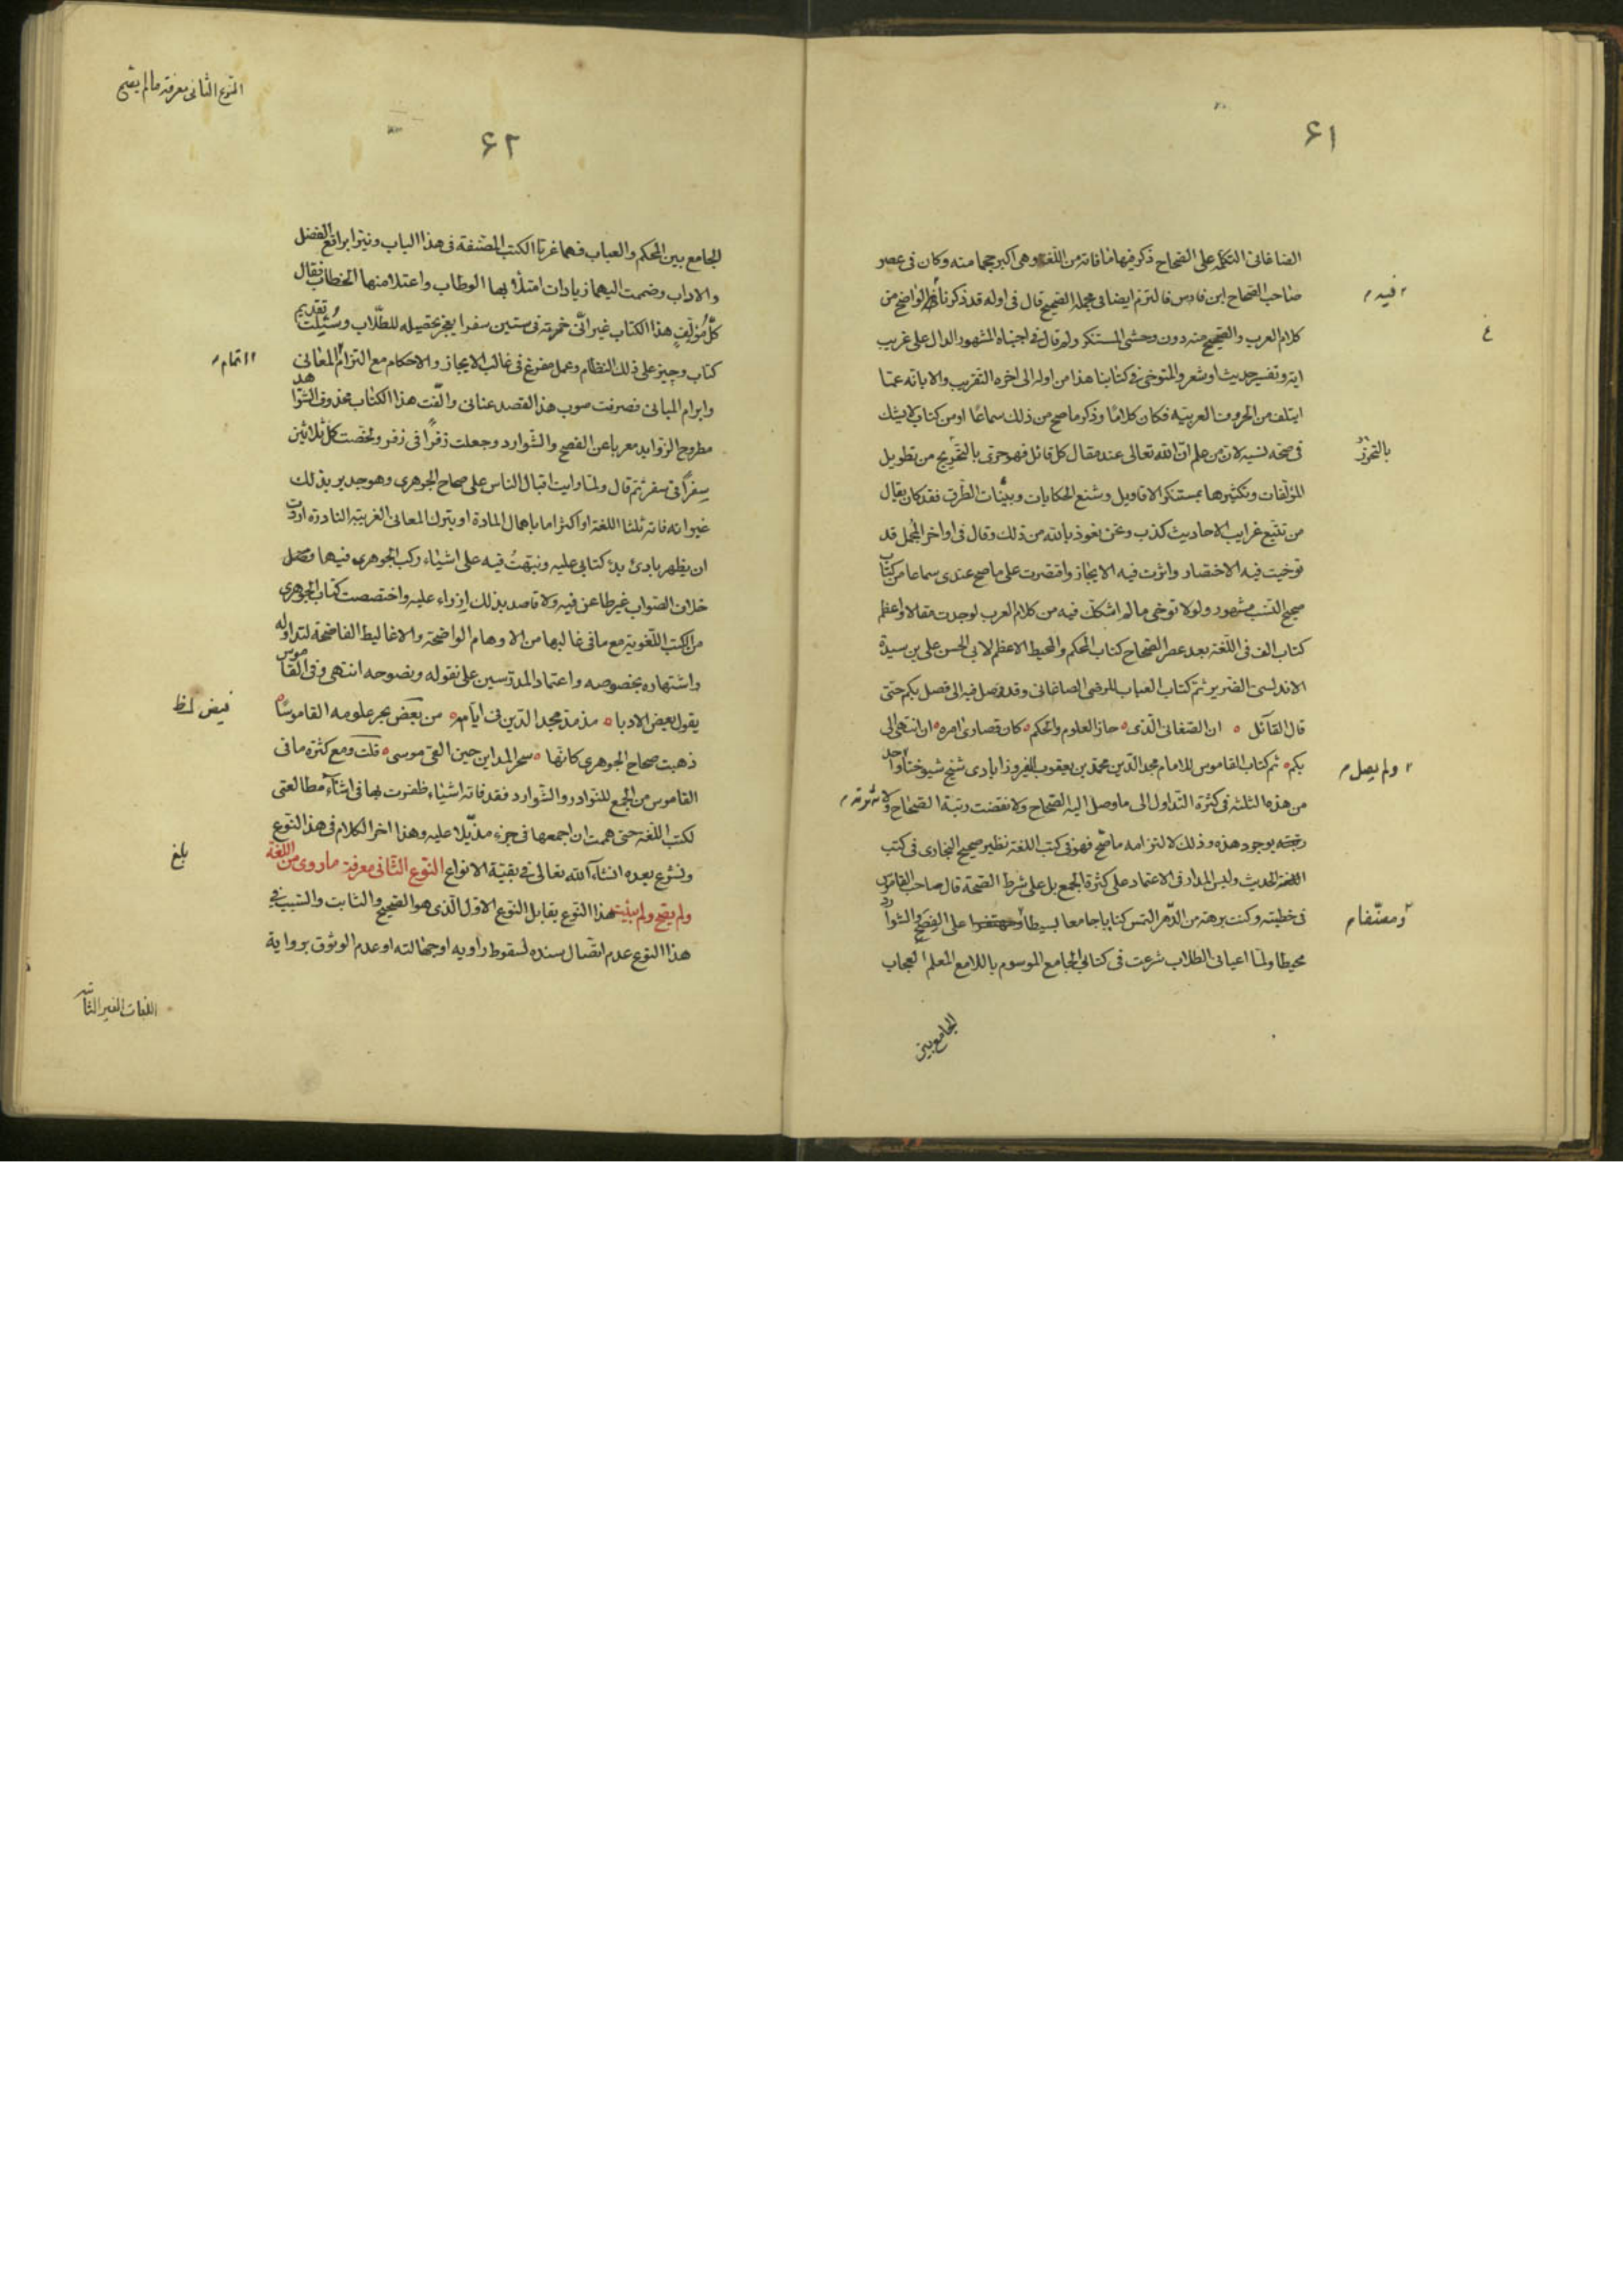 ۶۱
الصاغانى التكملة على الصحاح ذكر فيها ما فاته من اللغة وهى اكبر حجما منه وكان فى عصر
صاحب الصحاح ابن فارس فالتزم ايضا فى مجمله الصحيح قال فى اوله قد ذكرنا فيه الواضح من
فيه
كلام العرب والصحيح منه دون وحشى المستنكر ولم قال فى اجتباه المشهور الدال على غريب
اية وتفسير حديث او شعر والمتوخى فى كتابنا هذا من اوله الى اخره التقريب والابانة عما
ايتلف من الحروف العربية فكان كلاما وذكر ما صح من ذلك سماعا او من كتاب لا يشك
فى صحة نسبه لان من علم ان الله تعالى عند مقال كل قائل فهو حرى بالتحريج من تطويل
بالتحرز
المؤلفات وتكثيرها بمستنكر الاقاويل وشنع الحكايات وبنيات الطرق فقد كان يقال
من تتبع غرايب الاحاديث كذب ونحن نعوذ بالله من ذلك وقال فى اواخر المجمل قد
توخيت فيه الاختصار واثرت فيه الايجاز واقتصرت على ما صح عندى سماعا من كتاب
صحيح النسب مشهور ولولا توخى ما لم اشكك فيه من كلام العرب لوجدت مقالا واعظم
كتاب الف فى اللغة بعد عصر الصحاح كتاب المحكم والمحيط الاعظم لابى الحسن على بن سيدة
الاندلسى الضرير ثم كتاب العباب للرضى الصاغانى وقد وصل فيه الى فصل بكم حتى
قال القائل ان الصغانى الذى حاز العلوم والحكم كان قصارى امره ان انتهى الى
بكم ثم كتاب القاموس للامام مجد الدين محمد بن يعقوب الفيروزابادى شيخ شيوخنا واحد
ولم يصل
من هذه الثلثة فى كثرة التداول الى ما وصل اليه الصحاح ولا نقضت رتبة الصحاح ولا شهرته
بوجود هذه وذلك لالتزامه ما صح فهو فى كتب اللغة نظير صحيح البخارى فى كتب
الحديث وليس المدار فى الاعتماد على كثرة الجمع بل على شرط الصحة قال صاحب القاموس
فى خطبته وكنت برهة من الدهر التمس كتابا جامعا بسيطا على الفصح والشوارد
ومصنفا م
محيطا ولما اعيانى الطلاب شرعت فى كتابى الجامع الموسوم باللامع المعلم العجاب
الجامع بين
النوع الثانى معرفة ما لم يصح
۶۲
الجامع بين المحكم والعباب فهما غرتا الكتب المصنفة فى هذا الباب ونيرا براقع الفضل
والاداب وضممت اليهما زيادات امتلأ بها الوطاب واعتلا منها الخطاب فقال
كل مؤلف هذا الكتاب غير انى خمنته فى ستين سفرا يعجز تحصيله للطلاب وسئلت تقديم
كتاب وجيز على ذلك النظام وعمل مفرغ فى غالب الايجاز والاحكام مع التزام المعانى
اتمام
وابرام المبانى فصرفت صوب هذا القصد عنانى والفت هذا الكتاب محذوف الشواهد
مطروح الزوايد معربا عن الفصح والشوارد وجعلت زفرا فى زفر ولخصت كل ثلاثين
سفرا فى سفر ثم قال ولما رايت اقبال الناس على صحاح الجوهرى وهو جدير بذلك
غير انه فاته ثلثا اللغة او اكثر اما باهمال المادة او بترك المعانى الغريبة النادرة اردت
ان يظهر بادئ بدء كتابى عليه ونبهت فيه على اشياء ركب الجوهرى فيها
خلاف الصواب غير طاعن فيه ولا قاصد بذلك ازراء عليه واختصصت كتاب الجوهرى
من الكتب اللغوية مع ما فى غالبها من الاوهام الواضحة والاغاليط الفاضحة لتداوله
واشتهاره بخصوصه واعتماد المدرسين على نقوله ونصوصه انتهى وفى القاموس
يقول بعض الادبا مذ مد مجد الدين فى ايامه من بعض بحر علومه القاموسا
فيض ظ
ذهبت صحاح الجوهرى كانها سحر المداين حين القى موسى قلت ومع كثرة ما فى
القاموس من الجمع للنوادر والشوارد فقد فاته اشياء ظفرت بها فى اثناء مطالعتى
لكتب اللغة حتى هممت ان اجمعها فى جزء مذيلا عليه وهذا اخر الكلام فى هذا النوع
ونشرع بعده انشاء الله تعالى فى بقية الانواع النوع الثانى معرفة ما روى من اللغة
بلغ
ولم يصح ولم يثبت هذا النوع يقابل النوع الاول الذى هو الصحيح والثابت والسبب فى
هذا النوع عدم اتصال سنده لسقوط راويه او جهالته او عدم الوثوق برواية
اللغات الغير الثابتة